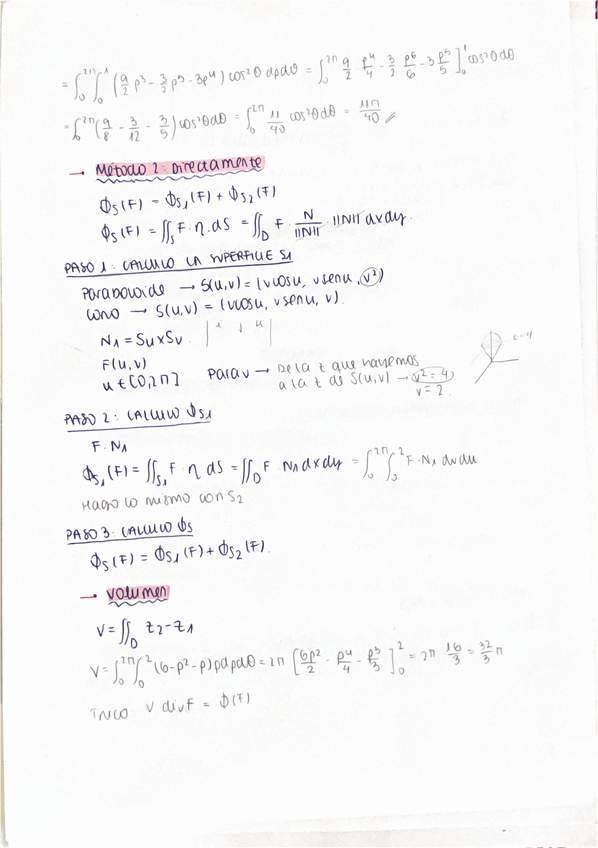 = ∫₀^2π ∫₀^1 (9/2 ρ³ - 3/2 ρ⁵ - 3ρ⁴) cos²θ dρdθ = ∫₀^2π 9/2 · ρ⁴/4 - 3/2 ρ⁶/6 - 3 ρ⁵/5 ]₀^1 cos²θ dθ
= ∫₀^2π (9/8 - 3/12 - 3/5) cos²θ dθ = ∫₀^2π 11/40 cos²θ dθ = 11π/40
→ Método 2: Directamente
Φs(F) = Φs₁(F) + Φs₂(F)
Φs(F) = ∬s F · η · ds = ∬D F · N/||N|| · ||N|| dxdy.
PASO 1: CALCULO LA SUPERFICIE S1
Paraboloide → S(u,v) = (vcosu, vsenu, v²)
Cono → S(u,v) = (vcosu, vsenu, v).
N₁ = Su x Sv.
F(u,v)
u ∈ [0, 2π] Para v → De la z que tenemos
a la z de S(u,v) → v² = 4
v = 2.
z=4
PASO 2: CALCULO Φs1
F · N₁
Φs₁(F) = ∬s₁ F · η ds = ∬D F · N₁ dxdy = ∫₀^2π ∫₀^2 F · N₁ dvdu
Hago lo mismo con S2
PASO 3: CALCULO Φs
Φs(F) = Φs₁(F) + Φs₂(F).
→ Volumen
V = ∬D z₂ - z₁
V = ∫₀^2π ∫₀^2 (6-ρ²-ρ) ρdρdθ = 2π [6ρ²/2 - ρ⁴/4 - ρ³/3]₀^2 = 2π 16/3 = 32/3 π
V divF = Φ(F)